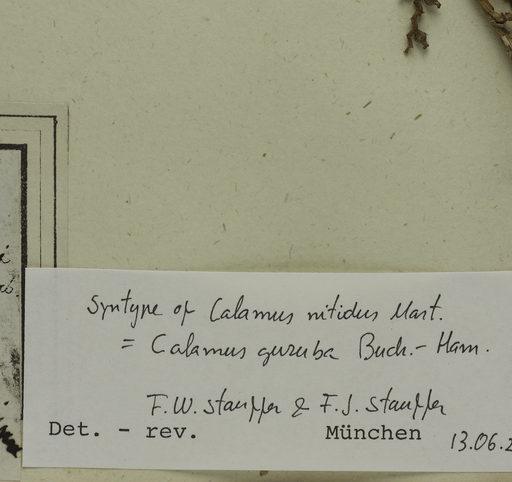 Syntype of Calamus nitidus Mart.
= Calamus guruba Buch.-Ham.
F.W. Stauffer & F.J. Stauffer
Det. - rev. München 13.06.2